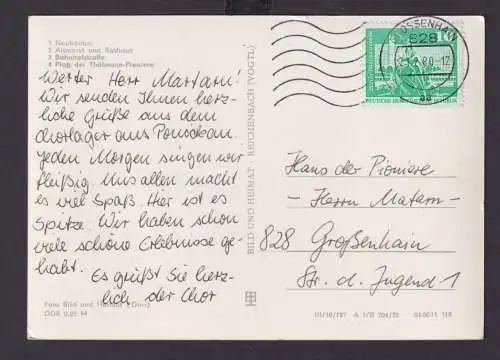 1 Neubauten
2 Altmarkt und Rathaus
3 Bahnhofstraße
4 Platz der Thälmann-Pioniere
Werter Herr Martarn!
Wir senden Ihnen herz-
liche Grüße aus dem
Chorlager aus
Jeden Morgen singen wir
fleißig. Uns allen macht
es viel Spaß. Hier ist es
Spitze. Wir haben schon
viele schöne Erlebnisse ge-
habt.
Es grüßt Sie herz-
lich der Chor
Foto Bild und Heimat
DDR 0,20 M
BILD UND HEIMAT · REICHENBACH (VOGTL)
828
80-12
10
Haus der Pioniere
- Herrn Matarn -
828 Großenhain
Str. d. Jugend 1
III/18/197 A 1/B 704/76 01 0611 118